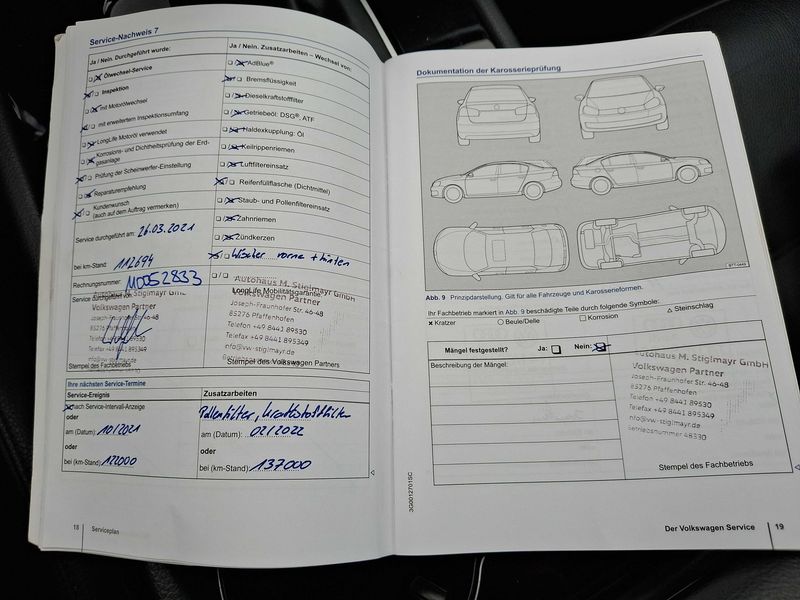 Service-Nachweis 7
Ja / Nein. Durchgeführt wurde:
Ölwechsel-Service
Inspektion
mit Motorölwechsel
mit erweitertem Inspektionsumfang
LongLife Motoröl verwendet
Korrosions- und Dichtheitsprüfung der Erd-
gasanlage
Prüfung der Scheinwerfer-Einstellung
Reparaturempfehlung
Kundenwunsch
(auch auf dem Auftrag vermerken)
Service durchgeführt am: 26.03.2021
bei km-Stand: 112694
Rechnungsnummer: M0052833
Service durchgeführt von:
Volkswagen Partner
Joseph-Fraunhofer Str. 46-48
85276 Pfaffenhofen
Telefon +49 8441 89530
Telefax +49 8441 895349
info@vw-stiglmayr.de
Stempel des Fachbetriebs
Ja / Nein. Zusatzarbeiten – Wechsel von:
AdBlue®
Bremsflüssigkeit
Dieselkraftstofffilter
Getriebeöl: DSG®, ATF
Haldexkupplung: Öl
Keilrippenriemen
Luftfiltereinsatz
Reifenfüllflasche (Dichtmittel)
Staub- und Pollenfiltereinsatz
Zahnriemen
Zündkerzen
Wischer vorne + hinten
Autohaus M. Stiglmayr GmbH
LongLife Mobilitätsgarantie
Volkswagen Partner
Joseph-Fraunhofer Str. 46-48
85276 Pfaffenhofen
Telefon +49 8441 89530
Telefax +49 8441 895349
info@vw-stiglmayr.de
Stempel des Volkswagen Partners
Ihre nächsten Service-Termine
Service-Ereignis
nach Service-Intervall-Anzeige
oder
am (Datum): 10/2021
oder
bei (km-Stand): 122000
Zusatzarbeiten
Pollenfilter, Kraftstofffilter
am (Datum): 02/2022
oder
bei (km-Stand): 137000
18 Serviceplan
Dokumentation der Karosserieprüfung
B7T-0449
Abb. 9 Prinzipdarstellung. Gilt für alle Fahrzeuge und Karosserieformen.
Ihr Fachbetrieb markiert in Abb. 9 beschädigte Teile durch folgende Symbole:
× Kratzer ○ Beule/Delle □ Korrosion △ Steinschlag
Mängel festgestellt? Ja: Nein:
Beschreibung der Mängel:
Autohaus M. Stiglmayr GmbH
Volkswagen Partner
Joseph-Fraunhofer Str. 46-48
85276 Pfaffenhofen
Telefon +49 8441 89530
Telefax +49 8441 895349
info@vw-stiglmayr.de
Betriebsnummer 48330
Stempel des Fachbetriebs
3G0012701SC
Der Volkswagen Service 19